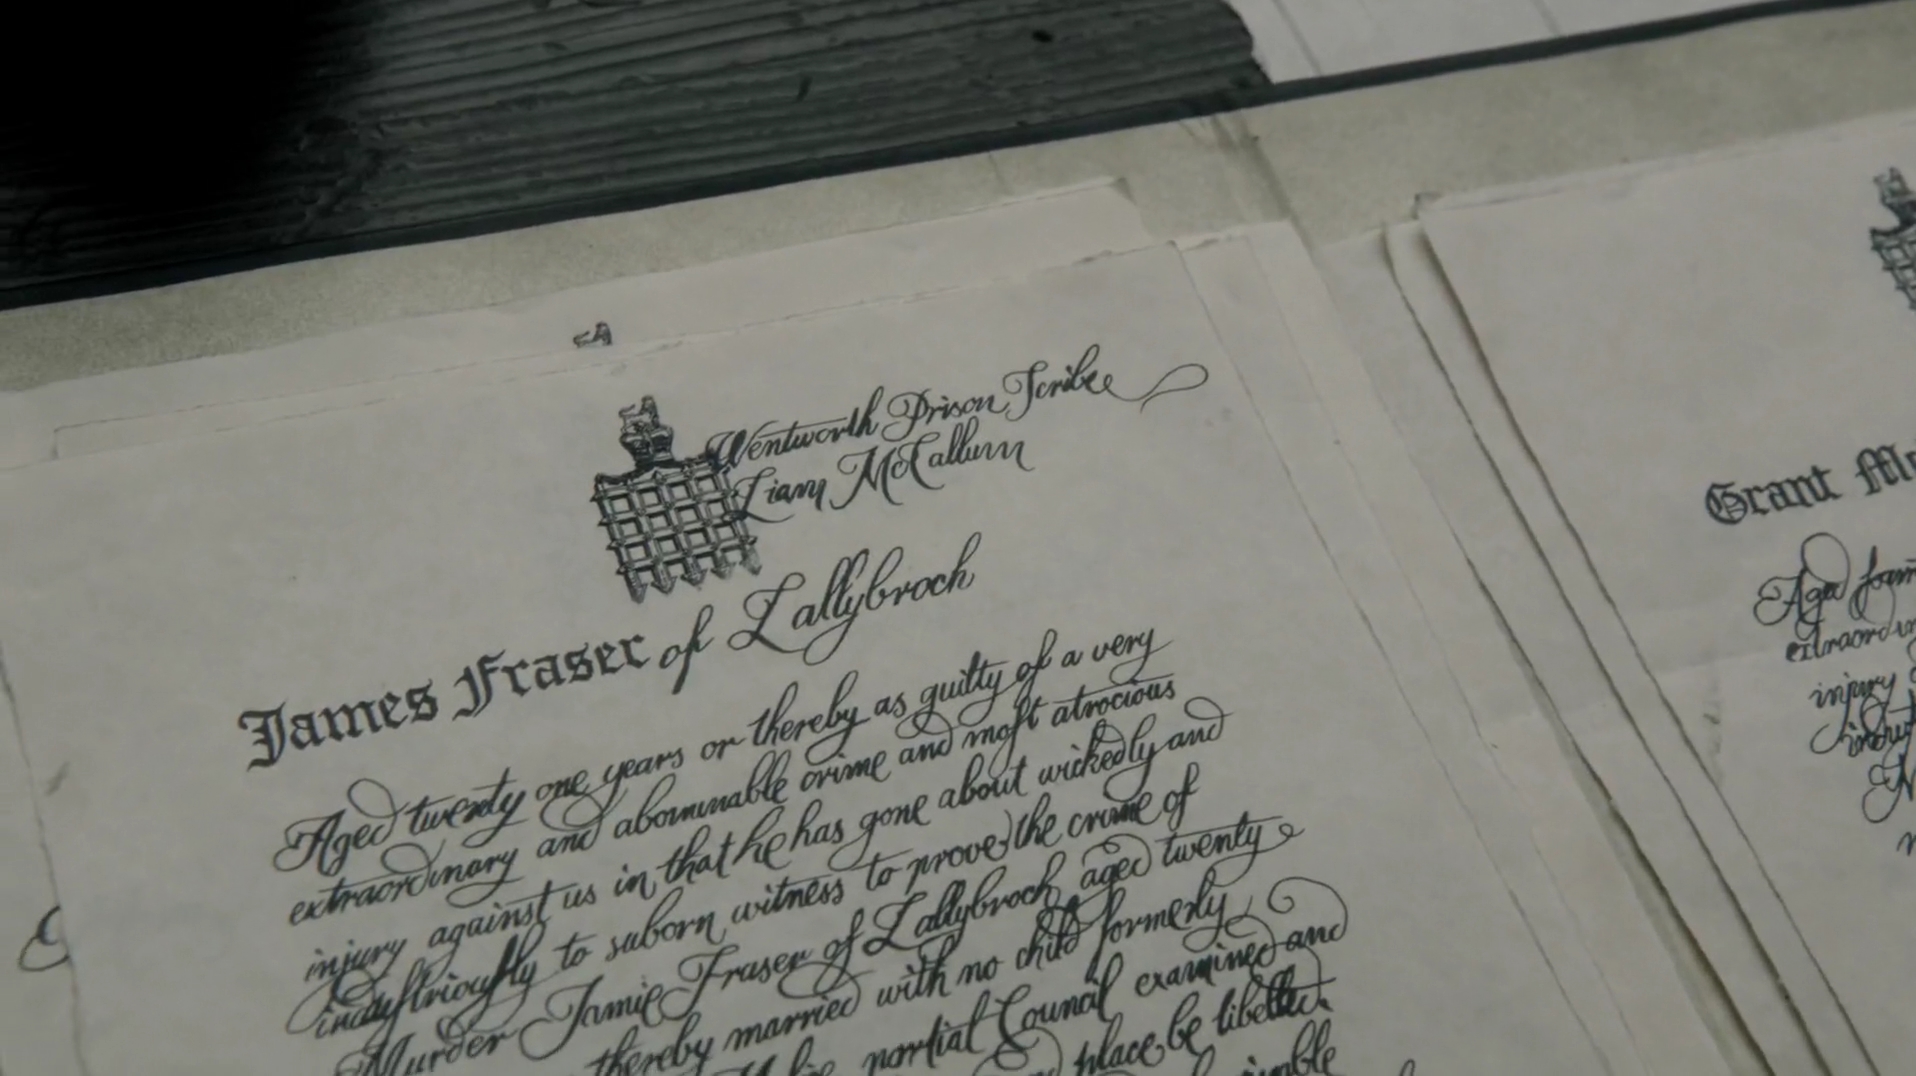 Wentworth Prison Scribe
Liam McCallum
James Fraser of Lallybroch
Aged twenty one years or thereby as guilty of a very
extraordinary and abominable crime and most atrocious
injury against us in that he has gone about wickedly and
industriously to suborn witness to prove the crime of
Murder Jamie Fraser of Lallybroch aged twenty
thereby married with no child formerly
martial Council examined and
place be
Grant
Aged
injury